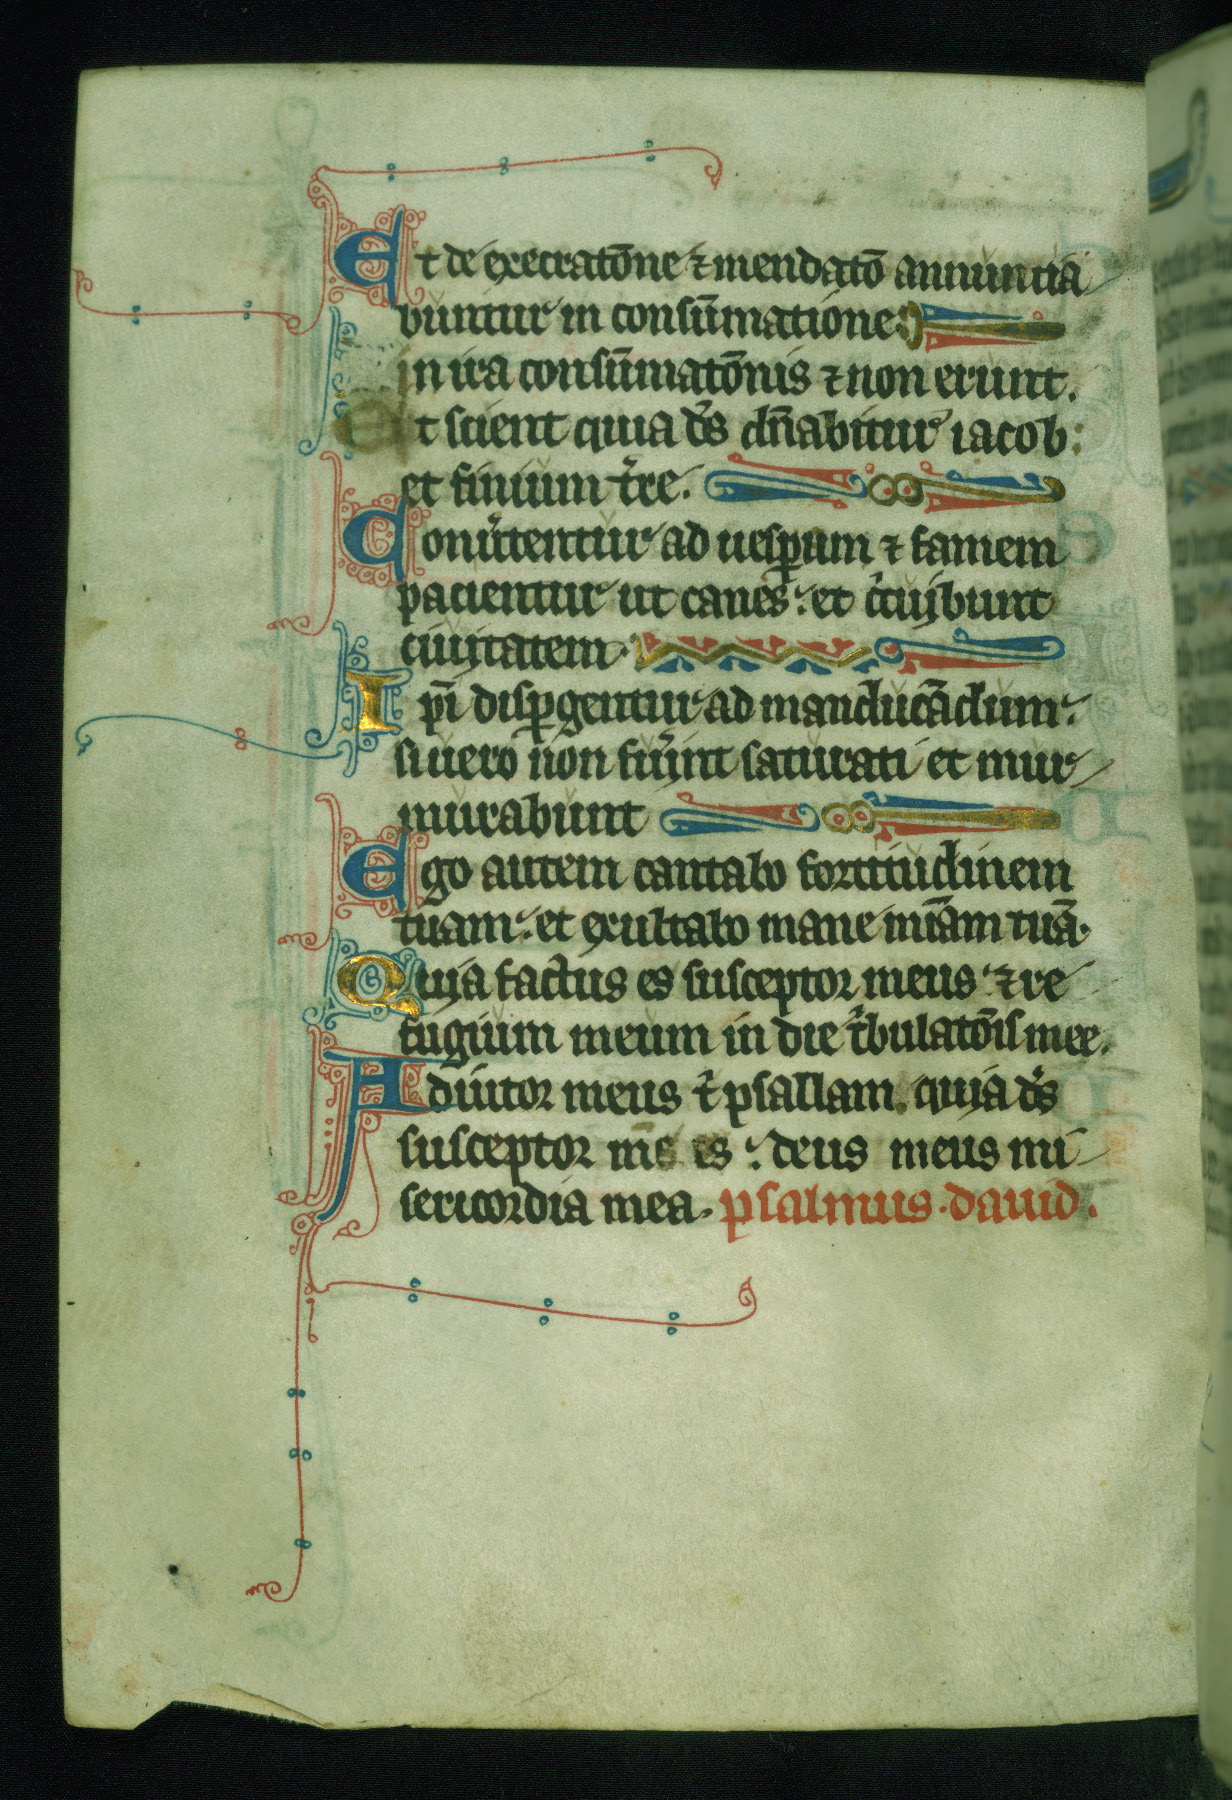 Et de execratōne ⁊ mendatō annuntia
buntur in consūmatione
in ira consūmatōnis ⁊ non erunt.
Et scient quia ds̄ dn̄abitur iacob:
et finium tr̄e.
Conuͥtentur ad uesꝑam ⁊ famem
pacientur ut canes: et cͥcuibunt
ciuitatem.
Ip̄i disꝑgentur ad manducādum:
si uero non fuͥint saturati et mur
murabunt
Ego autem cantabo fortitudinem
tuam: et exultabo mane mīam tuā.
Quia factus es susceptor meus: ⁊ re
fugium meum in die tͥbulatōis mee.
Adiutor meus tͥ psallam. quia ds̄
susceptor ms̄ es: deus meus mi
sericordia mea. psalmus. dauid.